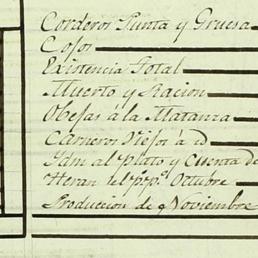 Corderos Punta y Gruesa
Cojos
Existencia Total
Muerto y Racion
Obejas à la Matanza
Carneros Viejos à id
Ydm al Plato y Cuenta de
Heran del pº pº Octubre
Producción de Noviembre